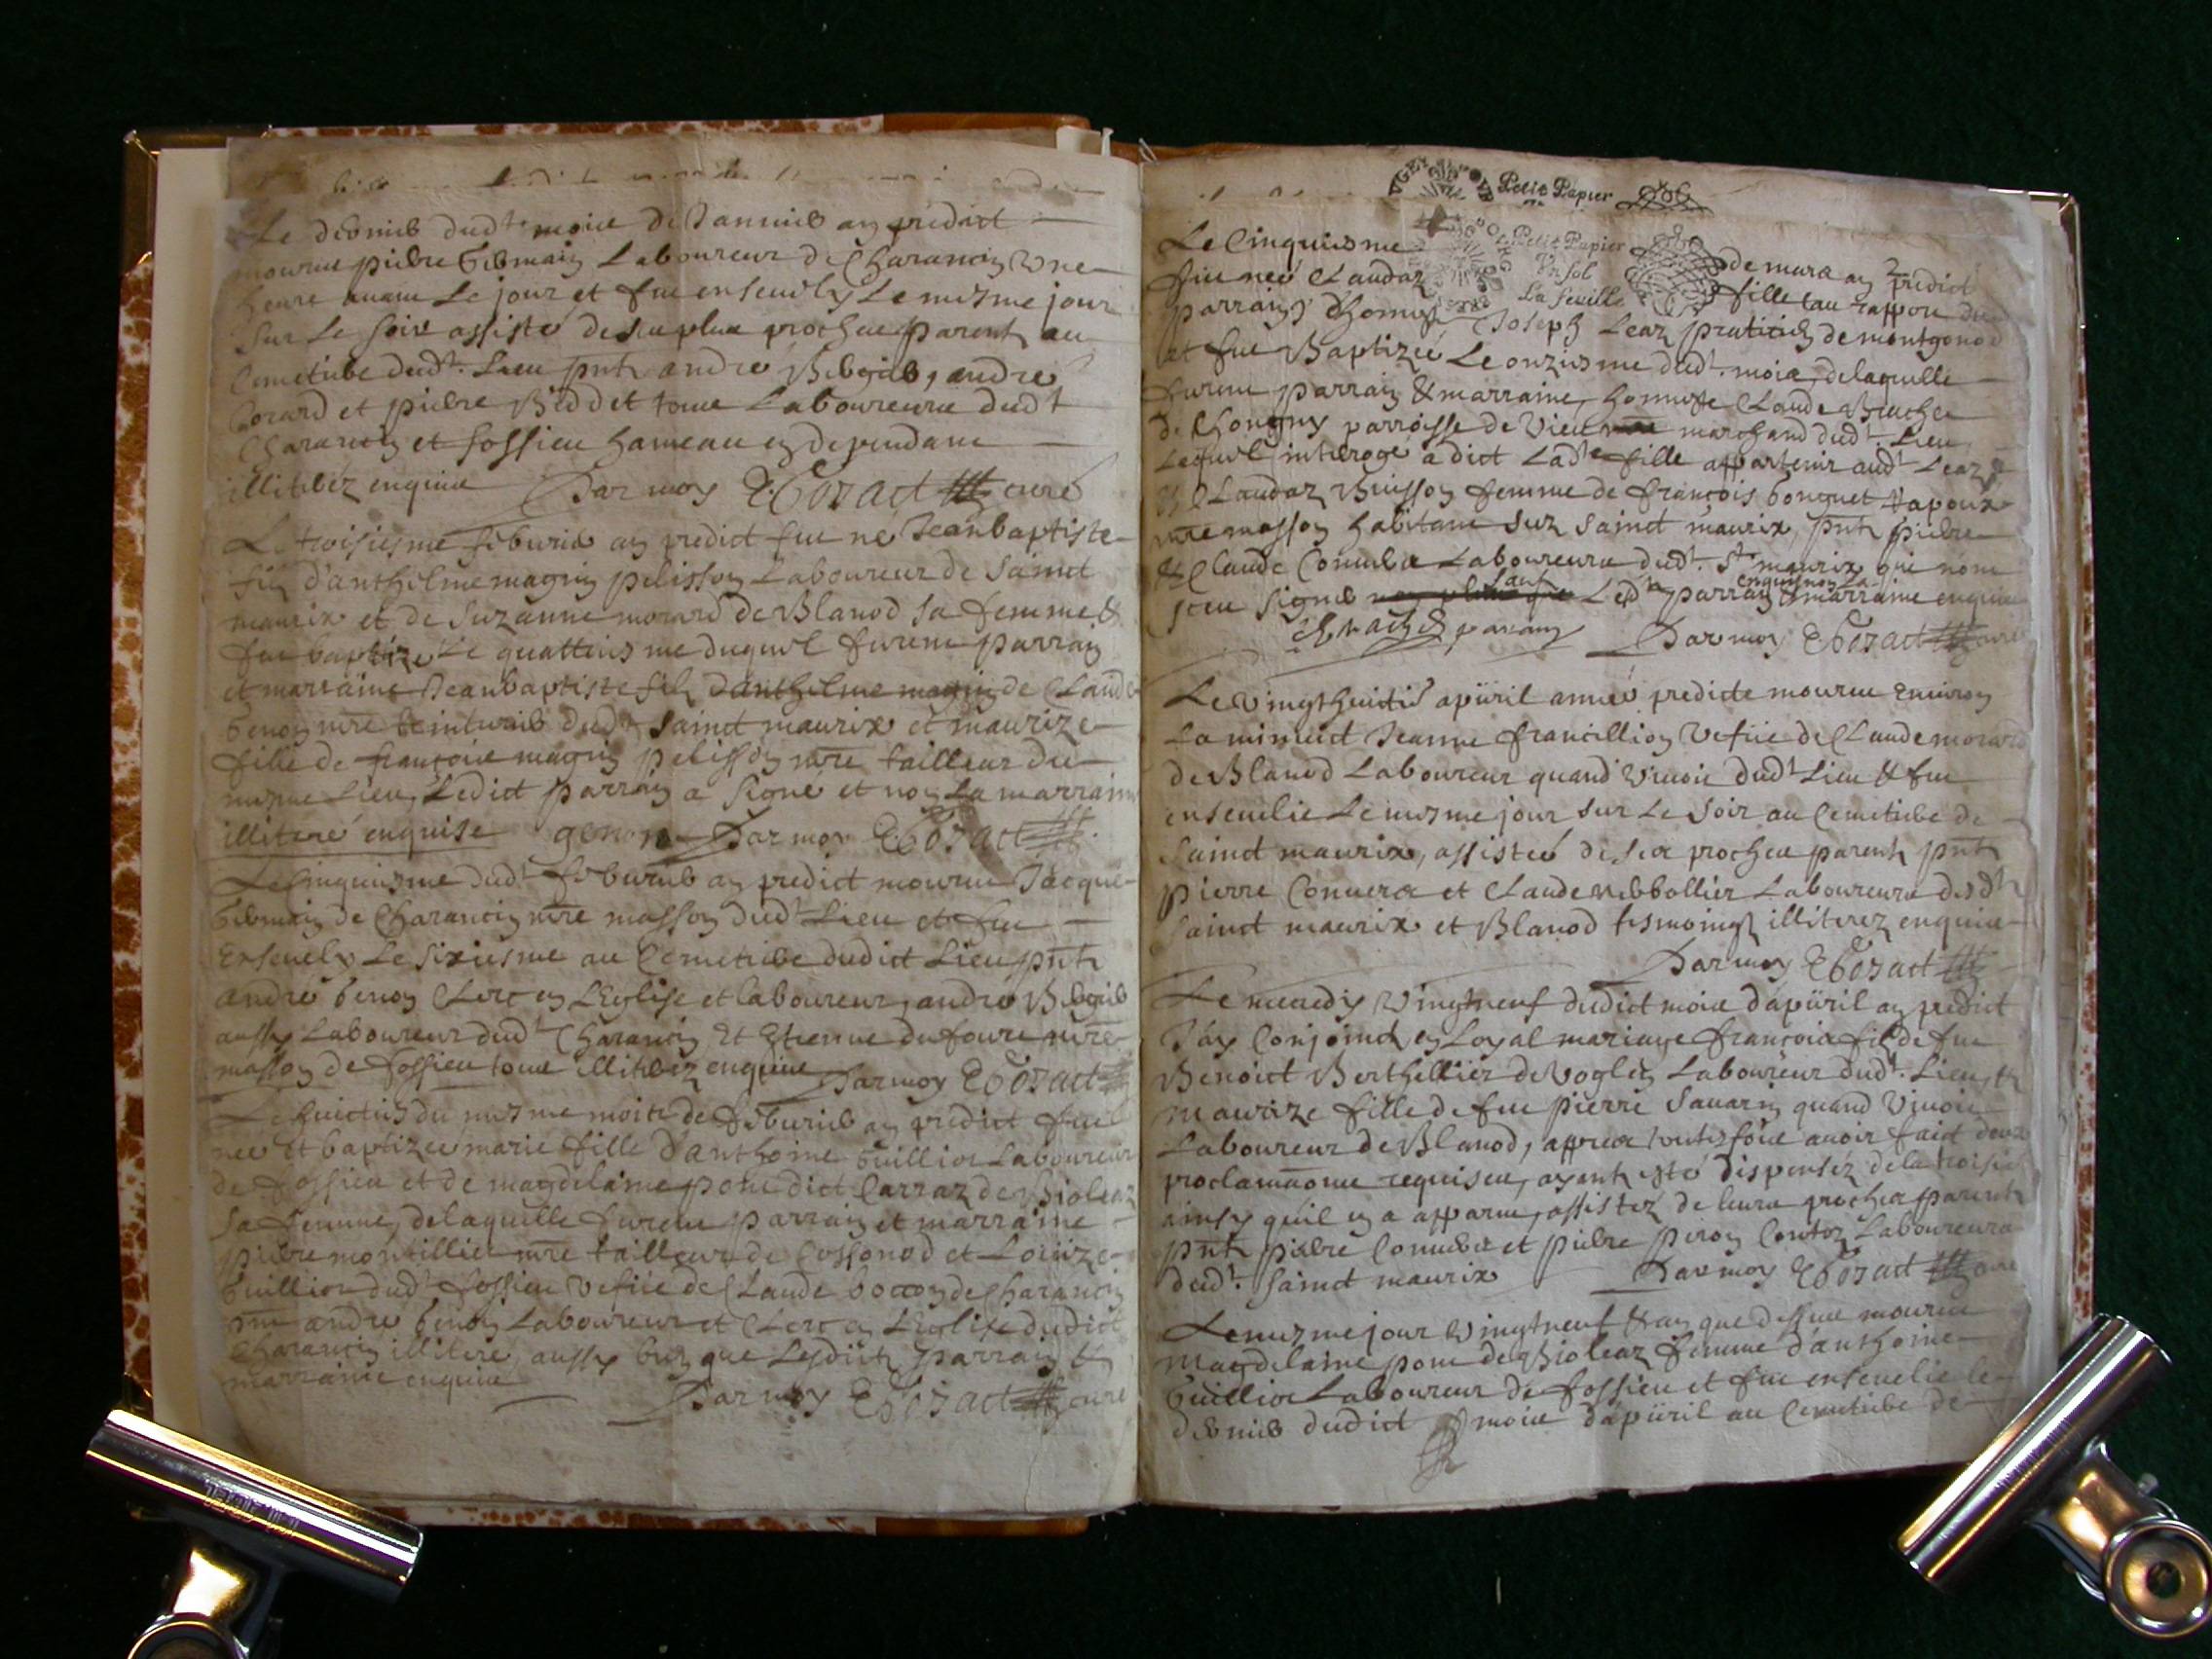 Le dernier dudt moice de Januier an predict
mourut pierre Germain Laboureur de Charancin Vne
heure auant Le jour et fut enseuely Le mesme jour
Sur Le Soir assisté de ses plus proches parents au
Cemetiere dudt. Lieu pnts andré Bergier, andré
Corard et pierre Beddet tous Laboureurs dudt
Charancin et fossieu hameau en dependant
illiterez enquis Par moy curé
Le troisiesme feburier an predict fut ne Jeanbaptiste
filz d'anthelme magnin pelisson Laboureur de Sainct
maurix et de Suzanne morard de Blanod sa femme &
fut baptizé Le quattriesme duquel furent parrain
et marraine Jeanbaptiste filz d'anthelme magnin de Claude
Genon mre teinturier dudt Sainct maurix et maurize
fille de françois magnin pelisson mre tailleur du
mesme Lieu, Ledict parrain a signé et non La marraine
illiteré enquise genon Par moy
Le Cinquiesme dudt feburier an predict mourut Jacque
Germain de Charancin mre masson dudt Lieu et fut
Enseuely Le Sixiesme au Cemetiere dudict Lieu pnts
andré Genon Clerc en L'Eglise et laboureur, andré Bergier
aussy Laboureur dudt Charancin Et Etienne dufour mre
masson de fossieu tous illiterez enquis Par moy
Le huictie du mesme mois de feburier an predict fut
nee Et baptizee marie fille d'anthoine Guillion Laboureur
de fossieu et de magdelaine pone dict Carraz de Bioleaz
sa femme, delaquelle furent parrain et marraine
pierre montillier mre tailleur de Cossonod et Louize
Guillion dudt fossieu Vefue de Claude boccon de Charancin
pnt andre Genon Laboureur et Clerc en L'Eglise dudict
Charancin illiteré, aussy bien que Lesdicts parrain &
marraine enquis
Par moy curé
Petit Papier
Petit Papier
Vn sol
La feuille
Le Cinquiesme de mars an predict
fut neé Claudaz fille tau rappor du
parrain) d'honneste Joseph Lear praticien de montgonod
et fut Baptizeé Le onziesme dudt. mois, delaquelle
furent parrain & marraine, honneste Claude Brachet
de Chongny parroisse de Vieu marchand dudt Lieu
Lequel interogé a dict Ladte fille appartenir audt Lear
& Claudaz Buisson femme de françois bonnet
mre masson habitant sur Sainct maurix, pnts pierre
& Claude Conuers Laboureurs dudt. St maurix qui n'ont
sceu signer sauf Ledt parrain & marraine enquis
enquis non La
Brachet parain Par moy curé
Le Vingthuictie apüril anneé predicte mourut Enuiron
La minuict Jeanne francillion Vefue de Claude morard
de Blanod Laboureur quand Viuoit dudt Lieu & fut
enseuelie Le mesme jour sur Le Soir au Cemetiere de
Sainct maurix, assisteé de ses proches parents pnts
pierre Conuers et Claude Laboureurs desdts
Sainct maurix et Blanod tesmoings illiterez enquis
Par moy
Le mecredy Vingtneuf dudict mois d'apüril an predict
J'ay Conjoinct en Loyal mariage françois filz de fut
Benoict Berthellier de Voglen Laboureur dudt. Lieu, et
maurize fille de fut pierre Sauarin quand Viuoit
Laboureur de Blanod, appres toutesfois auoir faict deux
proclamaõns requises, ayant esté dispensez de la troisie
ainsy qu'il en a apparut, assistez de leurs proches parents
pnts pierre Conuers et pierre peron Contoz Laboureurs
dudt. Sainct maurix Par moy curé
Le mesme jour Vingtneuf & an que dessus mourut
Magdelaine pone de Bioleaz femme d'anthoine
Guillion Laboureur de fossieu et fut enseuelie le
dernier dudict mois d'apüril au Cemetiere de